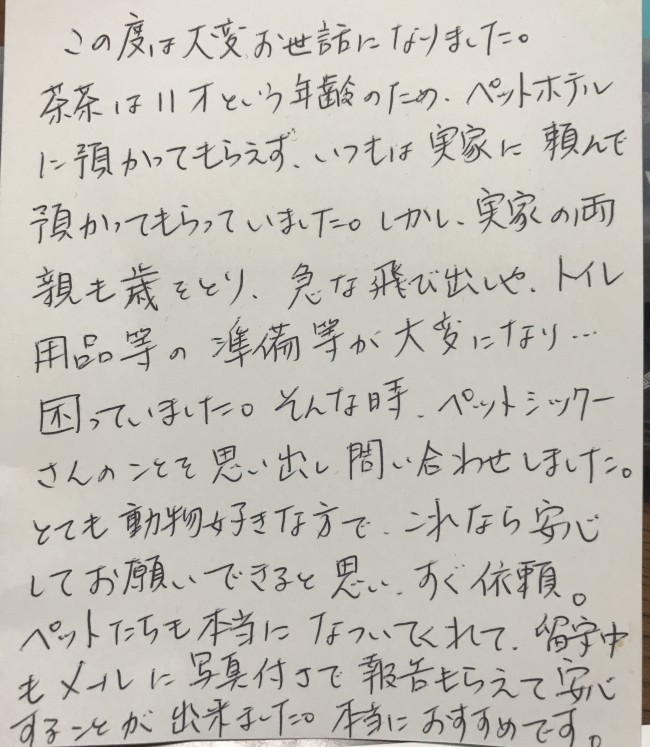 この度は大変お世話になりました。
茶茶は11才という年齢のため、ペットホテル
に預かってもらえず、いつもは実家に頼んで
預かってもらっていました。しかし、実家の両
親も歳をとり、急な飛び出しや、トイレ
用品等の準備等が大変になり…
困っていました。そんな時、ペットシッター
さんのことを思い出し問い合わせしました。
とても動物好きな方で、これなら安心
してお願いできると思い、すぐ依頼。
ペットたちも本当になついてくれて、留守中
もメールに写真付きで報告もらえて安心
することが出来ました。本当におすすめです。